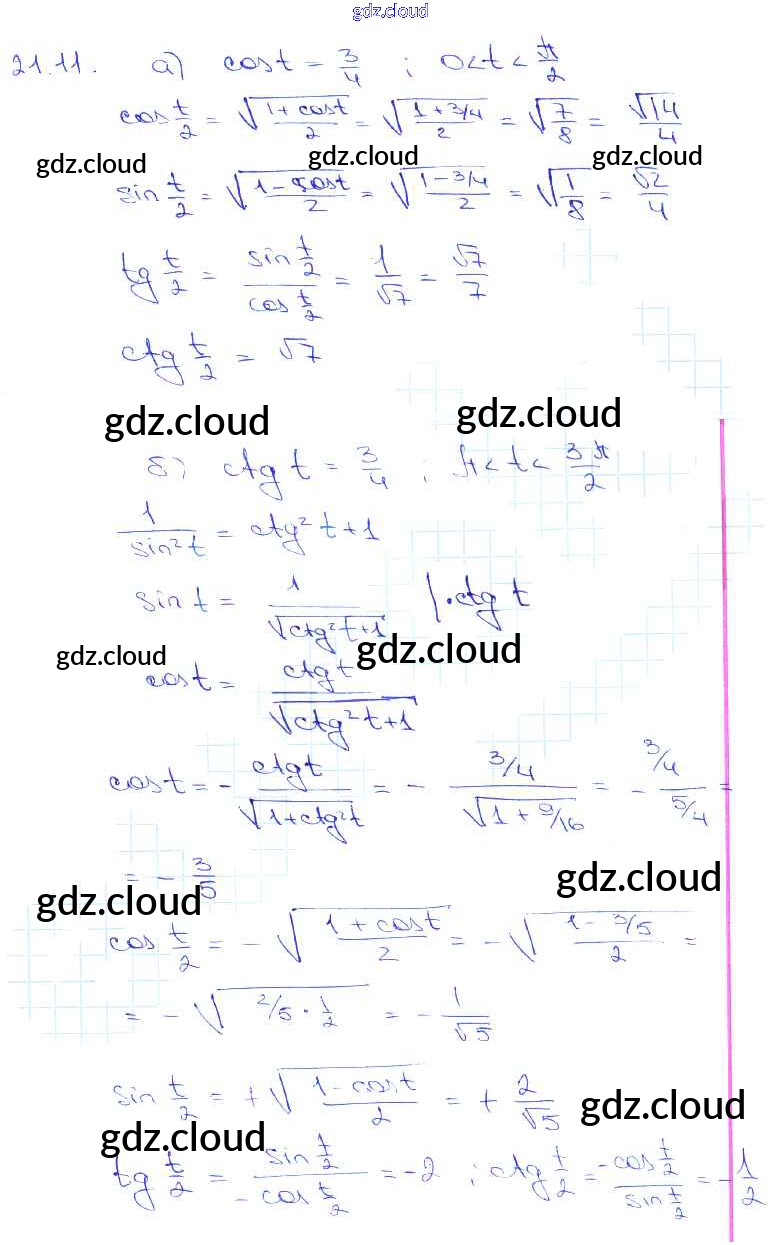 gdz.cloud
21.11. а) cos t = 3/4 ; 0 < t < π/2
cos t/2 = √((1 + cos t)/2) = √((1 + 3/4)/2) = √(7/8) = √14/4
gdz.cloud gdz.cloud gdz.cloud
sin t/2 = √((1 - cos t)/2) = √((1 - 3/4)/2) = √(1/8) = √2/4
tg t/2 = sin t/2 / cos t/2 = 1/√7 = √7/7
ctg t/2 = √7
gdz.cloud gdz.cloud
б) ctg t = 3/4 ; π < t < 3π/2
1/sin²t = ctg²t + 1
sin t = 1/√(ctg²t + 1) |·ctg t
gdz.cloud gdz.cloud
cos t = ctg t/√(ctg²t + 1)
cos t = - ctg t/√(1 + ctg²t) = - (3/4)/√(1 + 9/16) = - (3/4)/(5/4) =
= - 3/5
gdz.cloud gdz.cloud
cos t/2 = - √((1 + cos t)/2) = - √((1 - 3/5)/2) =
= - √(2/5 · 1/2) = - 1/√5
sin t/2 = + √((1 - cos t)/2) = + 2/√5
gdz.cloud gdz.cloud
tg t/2 = sin t/2 / - cos t/2 = -2 ; ctg t/2 = -cos t/2 / sin t/2 = - 1/2